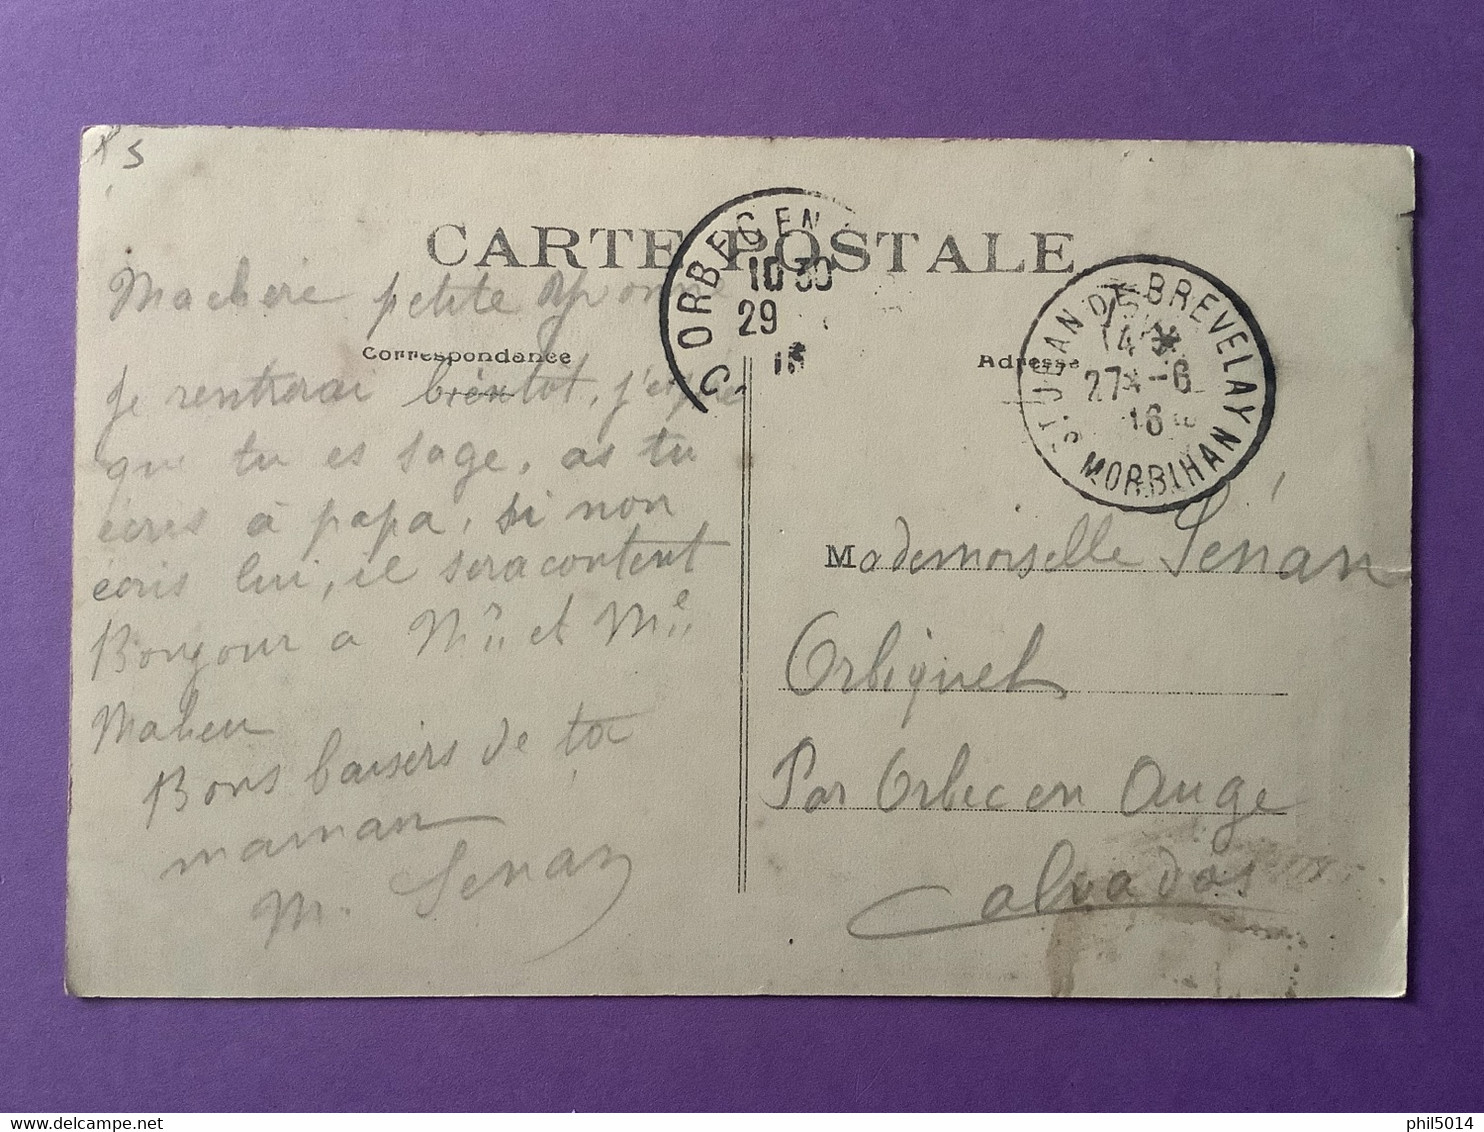 CARTE POSTALE
Correspondance
Adresse
ORBEC EN
10 30
29
16
ST JEAN DE BREVELAY
14
27 -6
16
MORBIHAN
Ma chere petite Yvonne
Je rentrerai bientot, j'espère
que tu es sage, as tu
écris à papa, si non
écris lui, il sera content
Bonjour a Mr et Me
Maheu
Bons baisers de ta
maman
M. Senan
Mademoiselle Senan
Orbiquet
Par Orbec en Auge
Calvados
delcampe.net
phil5014